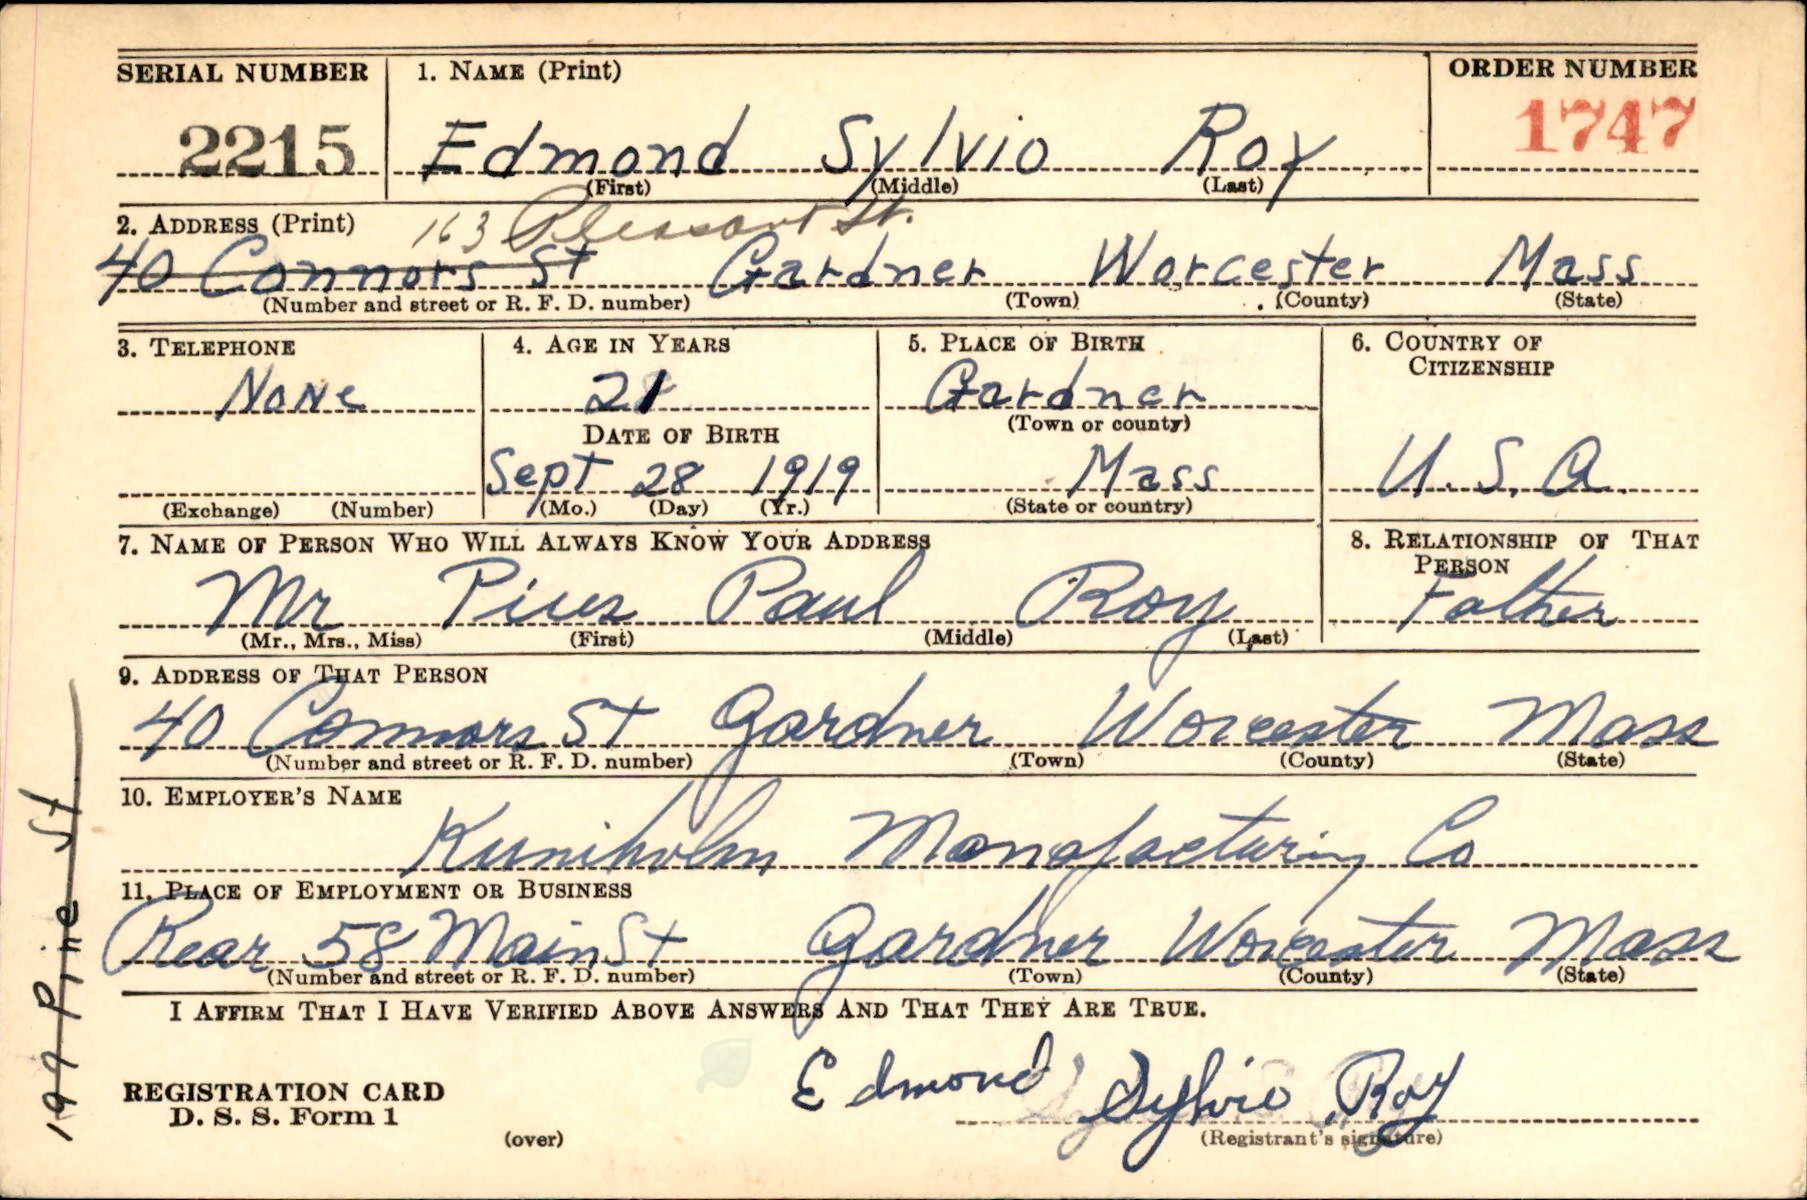 SERIAL NUMBER 1. NAME (Print) ORDER NUMBER
2215 Edmond Sylvio Roy 1747
(First) (Middle) (Last)
2. ADDRESS (Print) 163 Pleasant St.
40 Connors St Gardner Worcester Mass
(Number and street or R. F. D. number) (Town) (County) (State)
3. TELEPHONE 4. AGE IN YEARS 5. PLACE OF BIRTH 6. COUNTRY OF
CITIZENSHIP
None 21 Gardner
(Town or county)
DATE OF BIRTH
Sept 28 1919 Mass U.S.A.
(Exchange) (Number) (Mo.) (Day) (Yr.) (State or country)
7. NAME OF PERSON WHO WILL ALWAYS KNOW YOUR ADDRESS 8. RELATIONSHIP OF THAT
PERSON
Mr Pius Paul Roy Father
(Mr., Mrs., Miss) (First) (Middle) (Last)
9. ADDRESS OF THAT PERSON
40 Connors St Gardner Worcester Mass
(Number and street or R. F. D. number) (Town) (County) (State)
10. EMPLOYER'S NAME
Kuniholm Manofacturing Co
11. PLACE OF EMPLOYMENT OR BUSINESS
Rear 58 Main St Gardner Worcester Mass
(Number and street or R. F. D. number) (Town) (County) (State)
I AFFIRM THAT I HAVE VERIFIED ABOVE ANSWERS AND THAT THEY ARE TRUE.
Edmond Sylvio Roy
REGISTRATION CARD
D. S. S. Form 1
(over) (Registrant's signature)
199 Pine St